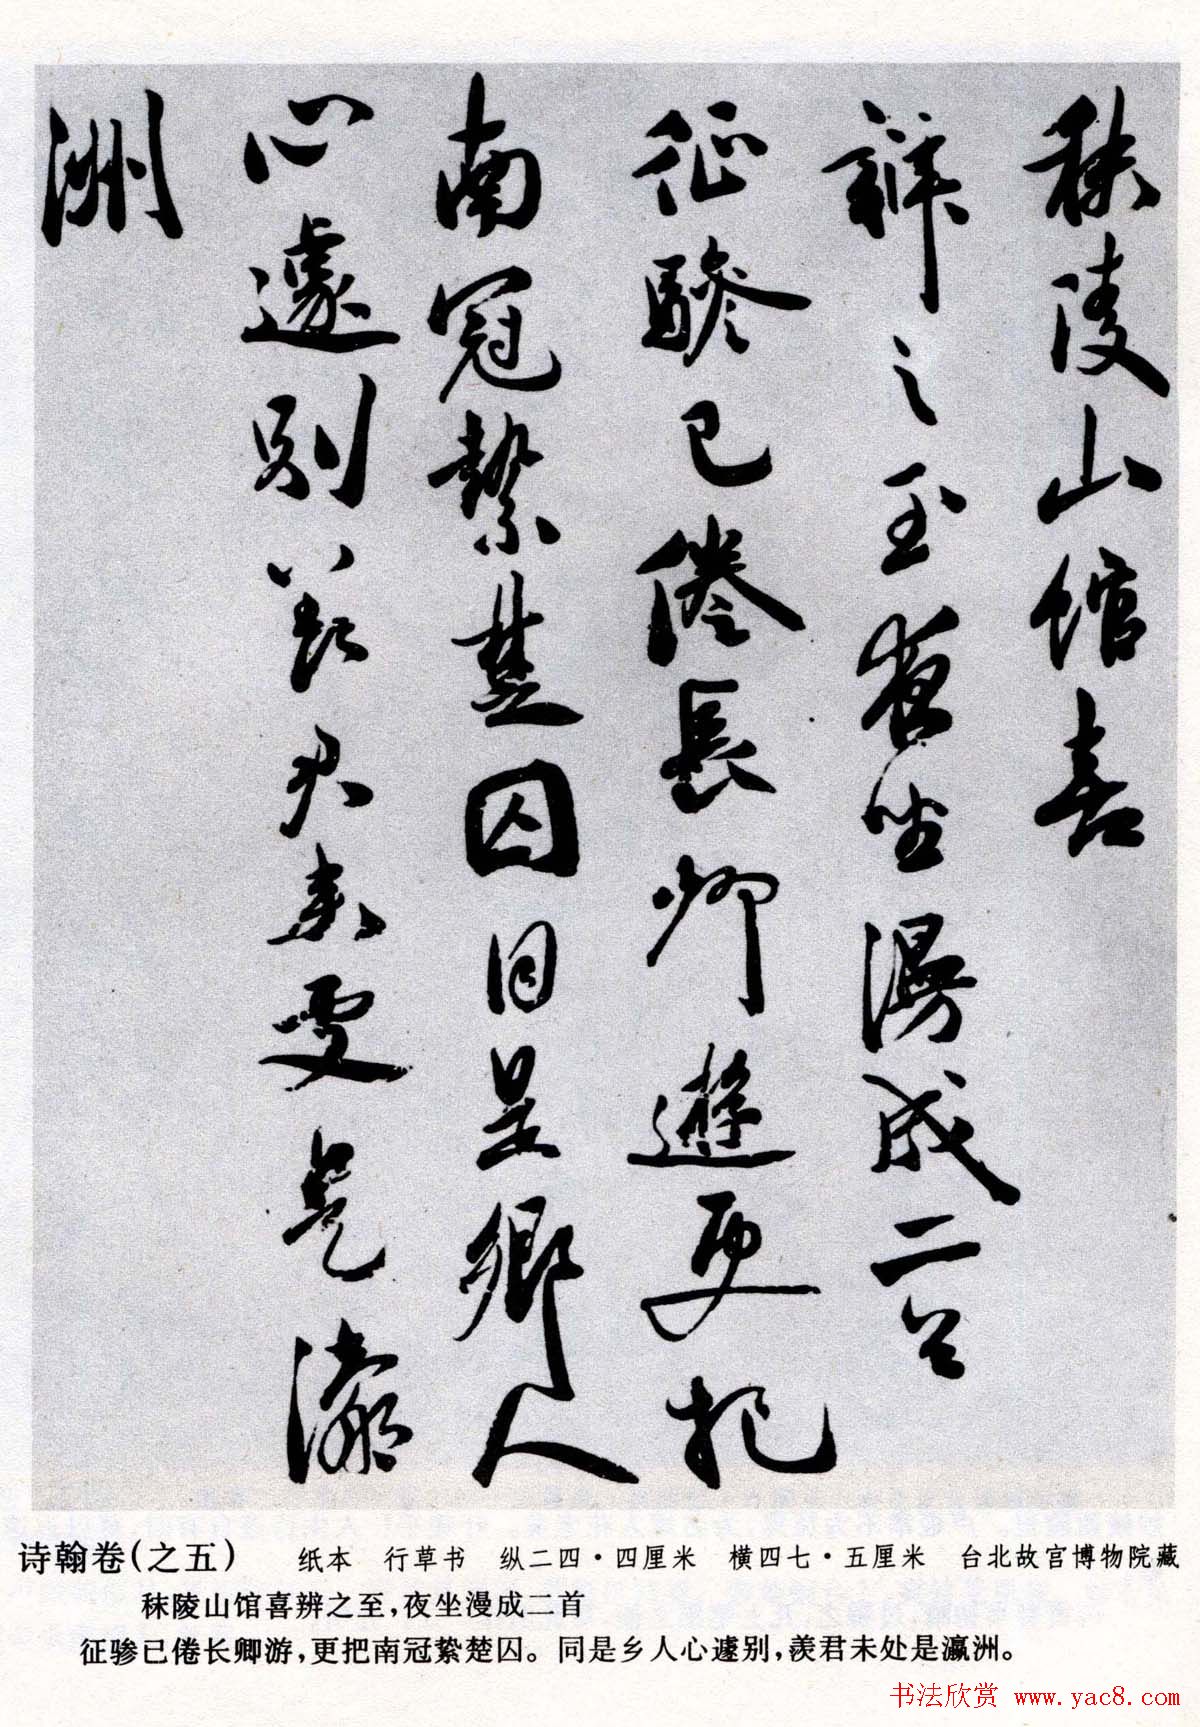 秣陵山館喜
辨之至夜坐漫成二首
征驂已倦長卿遊更把
南冠縶楚囚同是鄉人
心遽別羡君来處是瀛
洲
诗翰卷(之五) 纸本 行草书 纵二四·四厘米 横四七·五厘米 台北故宫博物院藏
秣陵山馆喜辨之至,夜坐漫成二首
征骖已倦长卿游,更把南冠絷楚囚。同是乡人心遽别,羡君未处是瀛洲。
书法欣赏 www.yac8.com